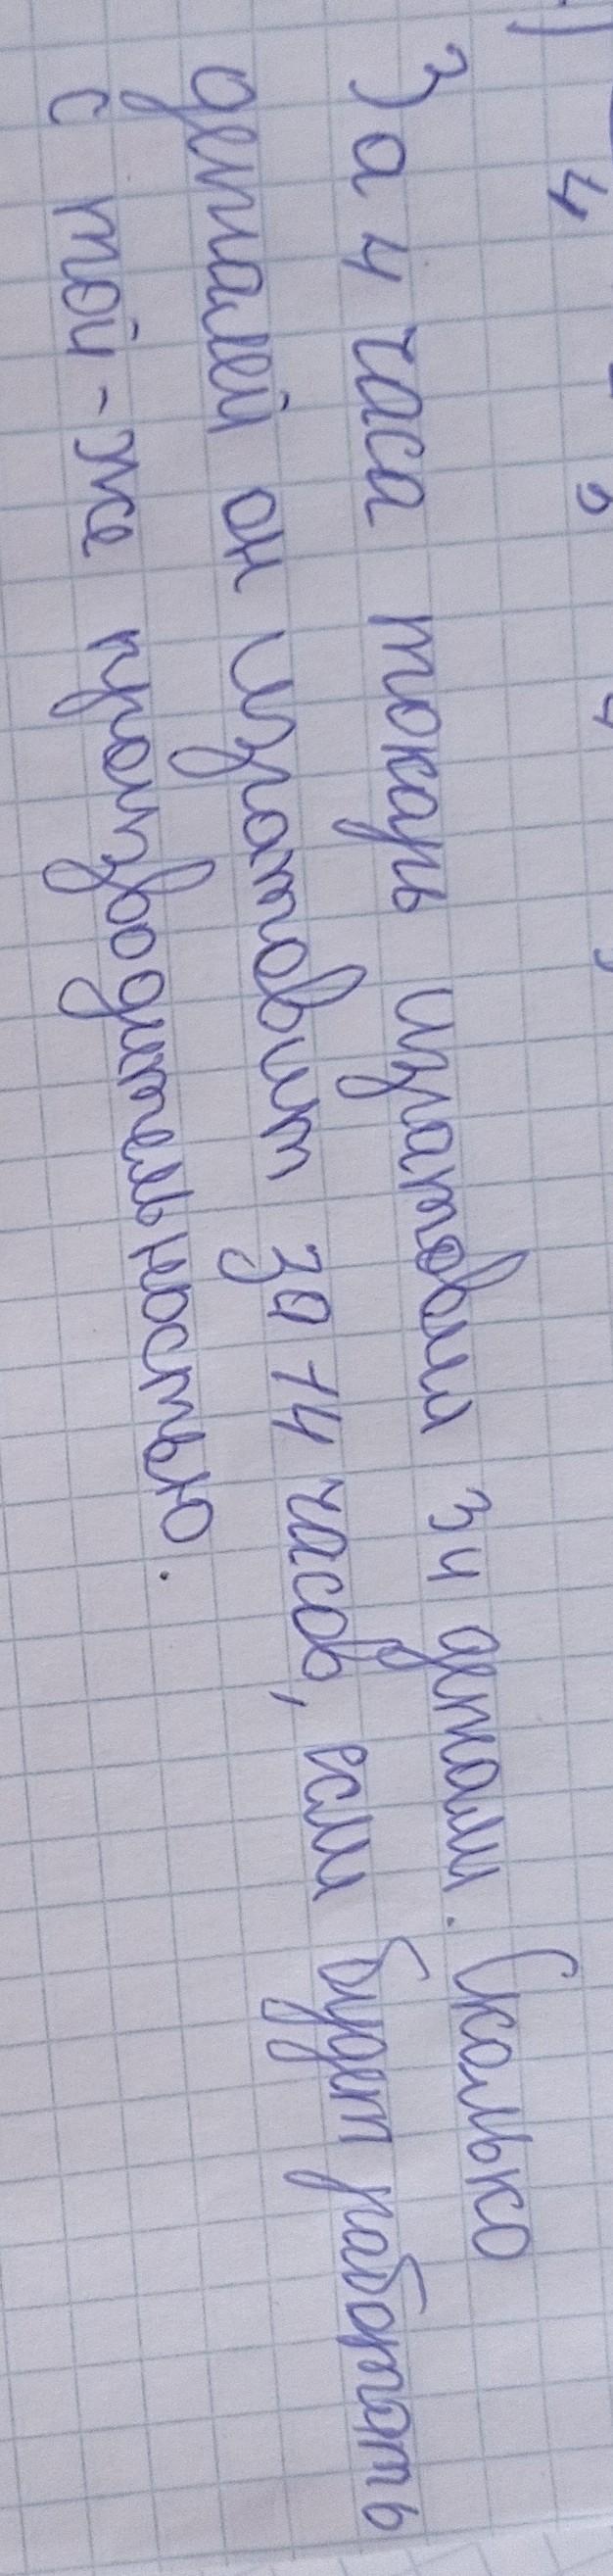 За 4 часа токарь изготовил 34 детали. Сколько
деталей он изготовит за 14 часов, если будет работать
с той-же производительностью.